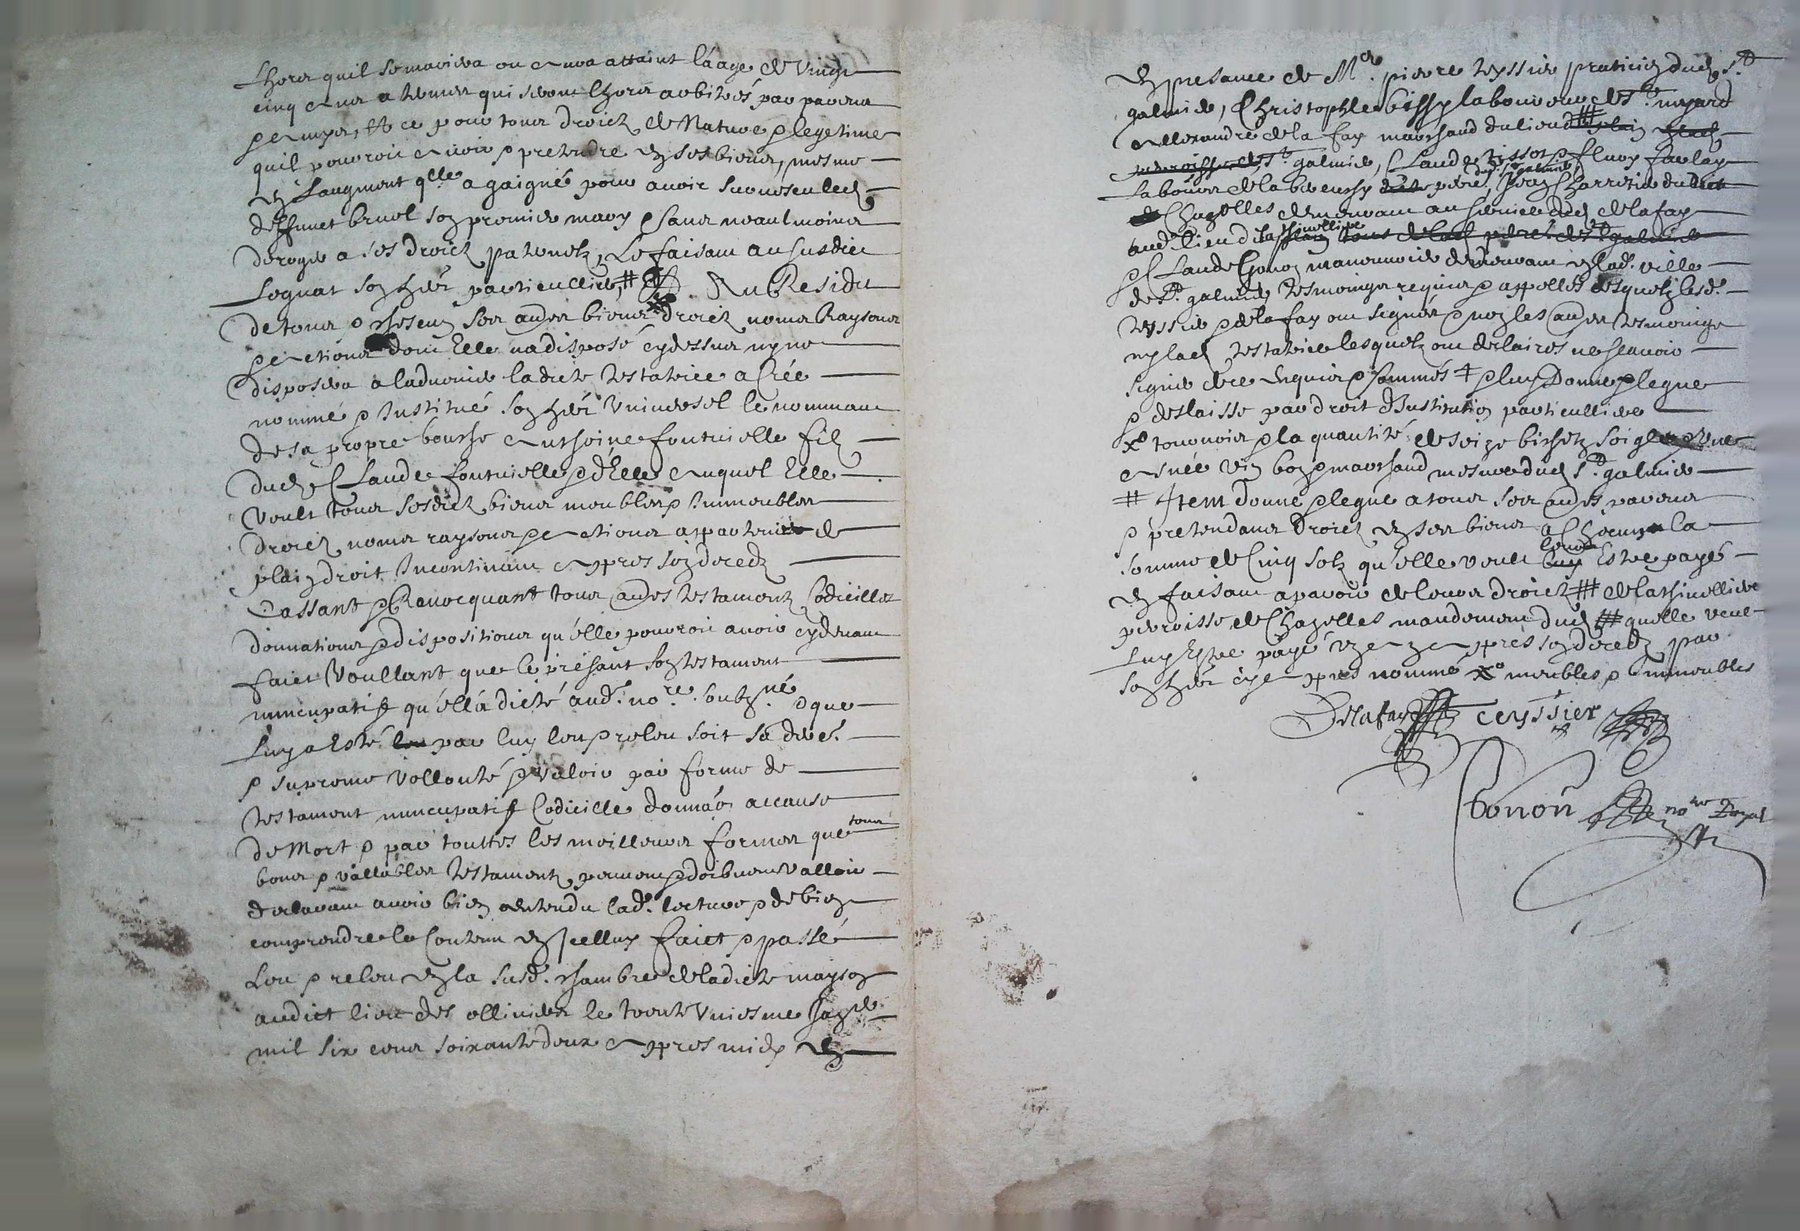 Lhors quil se mariera ou aura attaint l'aage de vingt
cinq a termes qui seront lhors arbitrés par parens
et amys, Et ce pour tous droictz de Nature et legetime
quil pourroit avoir et pretendre en ses biens, mesme
en Laugment qlle a gaigné pour avoir survescu led
deffunct son premier mary et sans neaulmoings
deroger a ses droictz paternelz, Le faisant au susdict
Legnat son her particullier, # Au Residu
de tous et chescungs ses aues biens droictz noms Raysons
et actions dont Elle na disposé cydessus ny ne
disposera a ladvenir ladicte testatrice a Crée
nommé et Institué son her Universel le nommant
de sa propre bousche anthoine fontvielle filz
dud Claude fontvielle et d'Elle auquel Elle
veult tous sesdictz biens meubles et Immeubles
droictz noms raysons et actions appartenir de
plain droit Incontinant apres son decedz
Cassant et Revocquant tous aues testamentz Codicilles
donnations et dispositions qu'elle pourroit avoir cydevant
faict Voullant que le présant son testament
nuncupatif qu'ell'a dicté aud. nore. soubzné. et que
Luy a Esté leu par luy leu et releu soit sa dere.
et supreme vollonté et valoir par forme de
testament nuncupatif Codicille donnaon accause
de Mort et par touttes les meilleures formes que tous
bons et vallables testamentz peuvent et doibvent valloir
declarant avoir bien entendu lad. lecture et de bien
comprendre le Contenu en Icelluy faict et passé
Leu et releu en la susd. chambre de ladicte mayson
audict lieu des olliviers le trente Uniesme Janer
mil six cens soixante deux apres midy En
En presance de Me. pierre teyssier praticien dud St
galmier, Christophle bissy laboureur de St. myard
allexandre de la fay marchand du lieu d
St galmier, Claude tissot et fleury faulay
Laboureur de la pierre, Jean Charretier
Chazelles demeurant au service dud delafay
aud. lieu de
et Claude Gonon manouvrier demeurant en lad. ville
de St. galmier tesmoings requis et appelles desquelz lesd.
teyssier et delafay ont signés et non les aues tesmoings
ny lad testatrice lesquelz ont desclairés ne scavoir
signer de ce Enquis et sommés + et luy Donne et legue
et deslaisse par droit d'Institution particulliere
Xo tournois et la quantité de seize bischetz soigle et Une
asnée vin bon et marchand mesure dud St galmier
# Item donne et legue a tous ses aues parens
et pretendans droictz en ses biens a Chacung la
somme de Cinq solz qu'elle veult leurs Estre payés
en faisant aparoir de leurs droictz # de lathivelliere
parroisse de Chazelles mandement dud # quelle veut
Luy Estre payé ung an apres son decedz par
son her cy apres nommé Xo meubles et immeubles
Delafay Teyssier
Gonon nore Royal